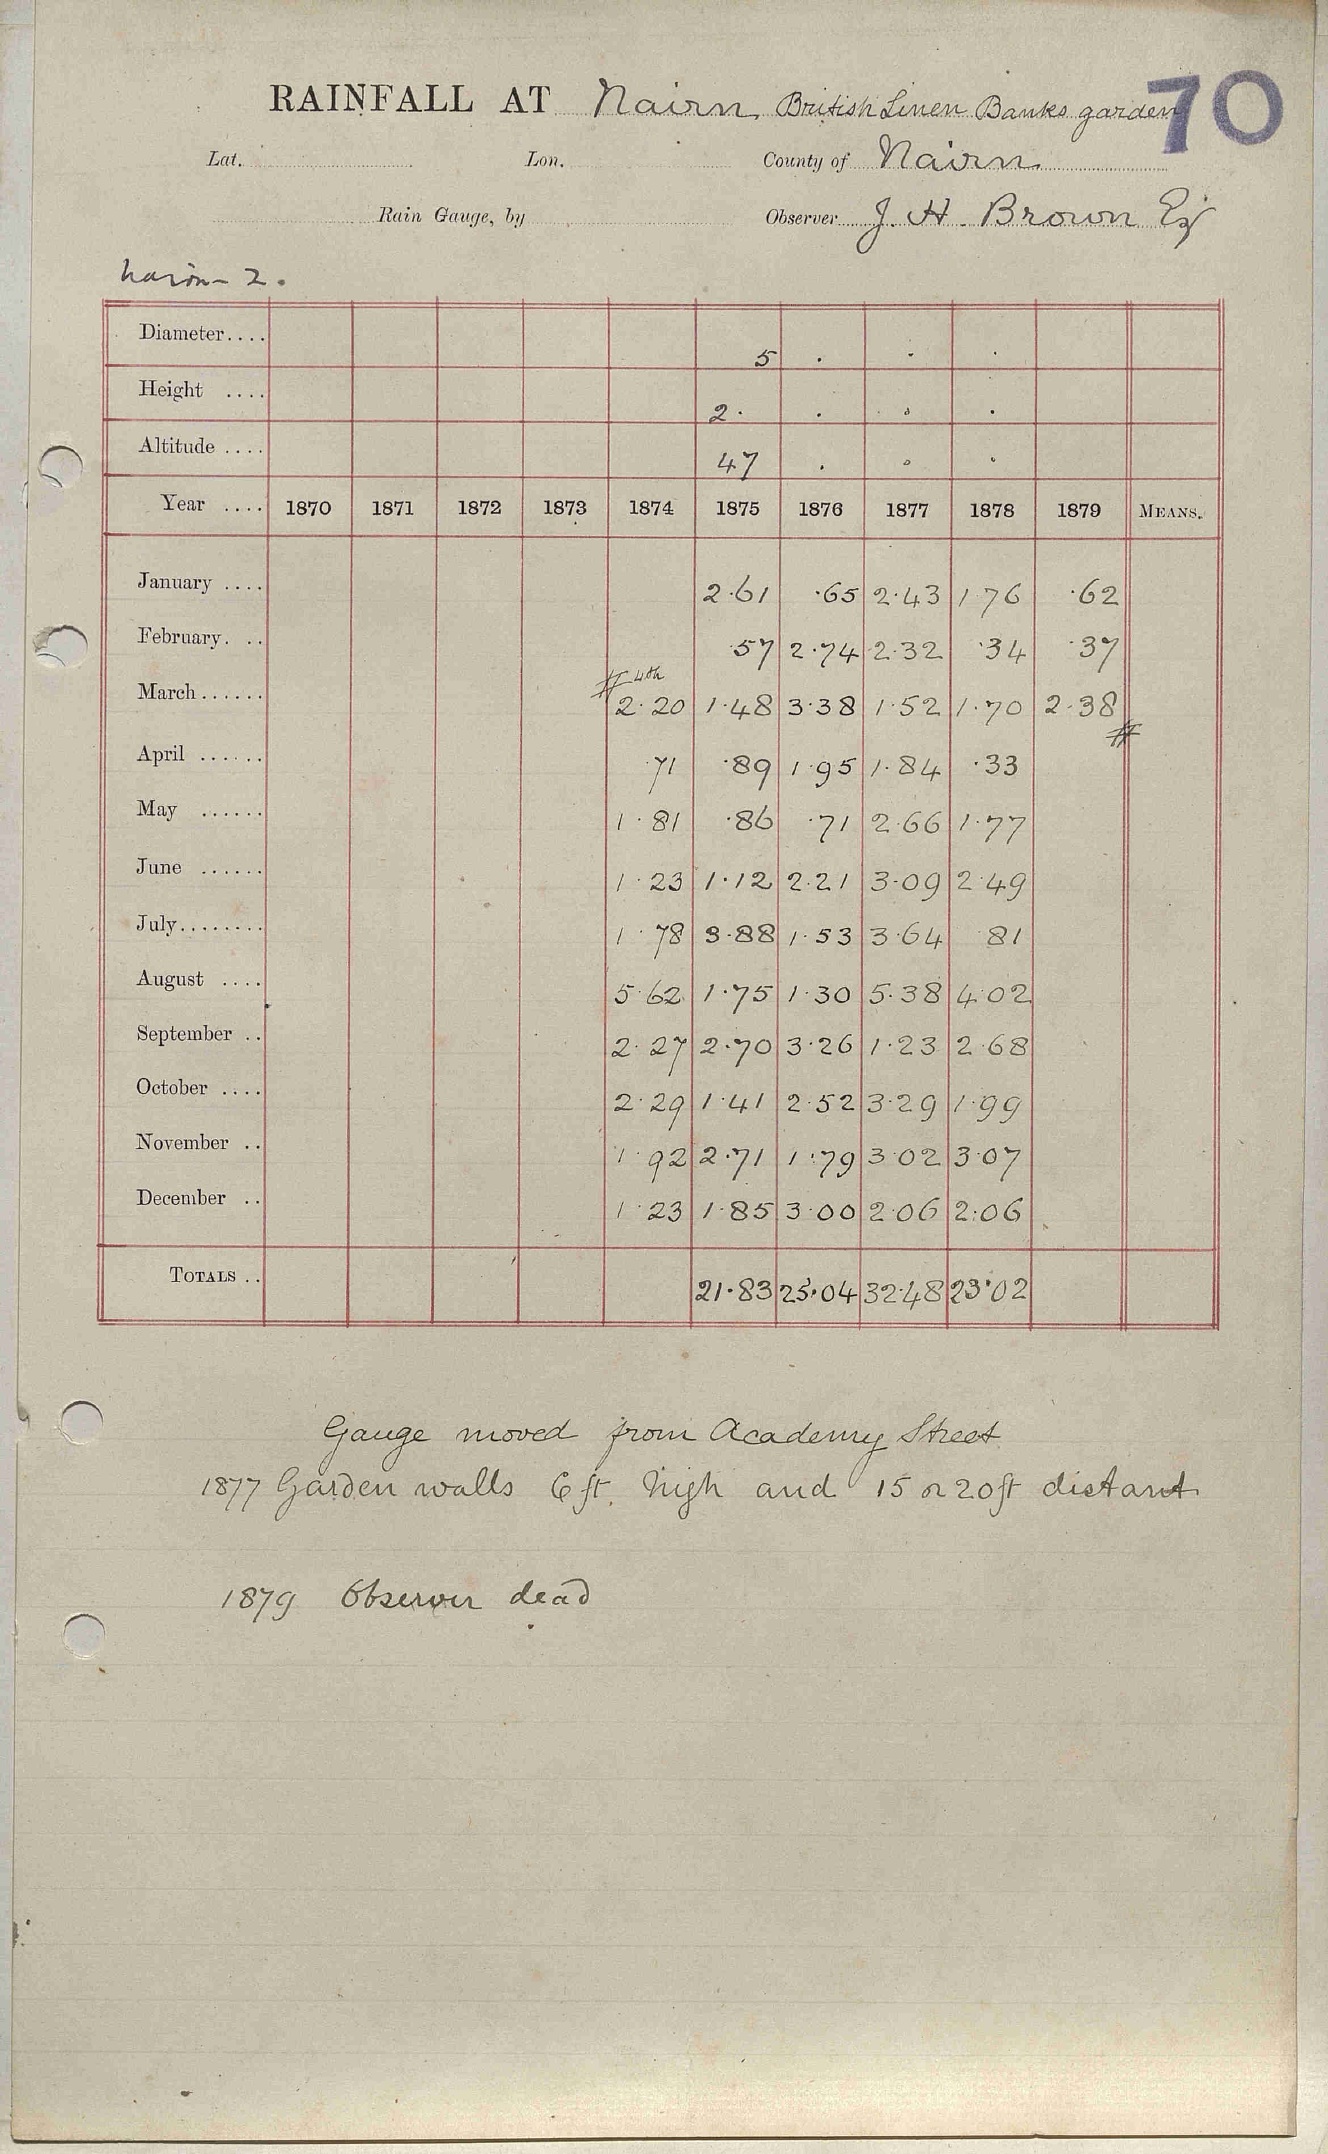 RAINFALL AT Nairn, British Linen Banks garden 70
Lat. Lon. County of Nairn
Rain Gauge, by Observer J. H. Brown Esq
Nairn - 2.
Diameter.... 5 . . .
Height .... 2. . . .
Altitude .... 47 . . .
Year .... 1870 1871 1872 1873 1874 1875 1876 1877 1878 1879 MEANS.
January .... 2.61 .65 2.43 1.76 .62
February. .. .57 2.74 2.32 .34 .37
# 4th
March...... 2.20 1.48 3.38 1.52 1.70 2.38
#
April ...... .71 .89 1.95 1.84 .33
May ...... 1.81 .86 .71 2.66 1.77
June ...... 1.23 1.12 2.21 3.09 2.49
July........ 1.78 3.88 1.53 3.64 81
August .... 5.62 1.75 1.30 5.38 4.02
September .. 2.27 2.70 3.26 1.23 2.68
October .... 2.29 1.41 2.52 3.29 1.99
November .. 1.92 2.71 1.79 3.02 3.07
December .. 1.23 1.85 3.00 2.06 2.06
TOTALS .. 21.83 25.04 32.48 23.02
Gauge moved from Academy Street
1877 Garden walls 6 ft. high and 15 or 20 ft distant
1879 Observer dead